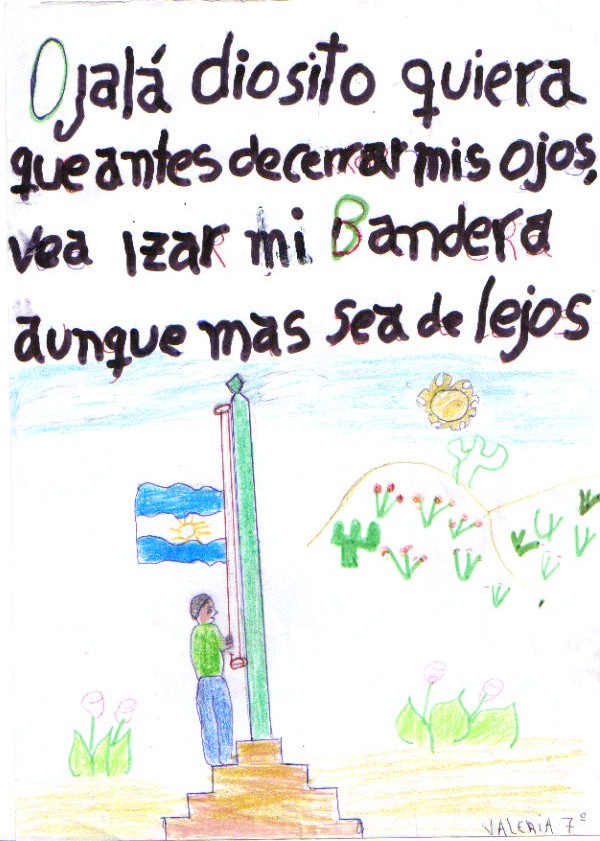 Ojalá diosito quiera
que antes de cerrar mis ojos,
vea izar mi Bandera
aunque mas sea de lejos
VALERIA 7º